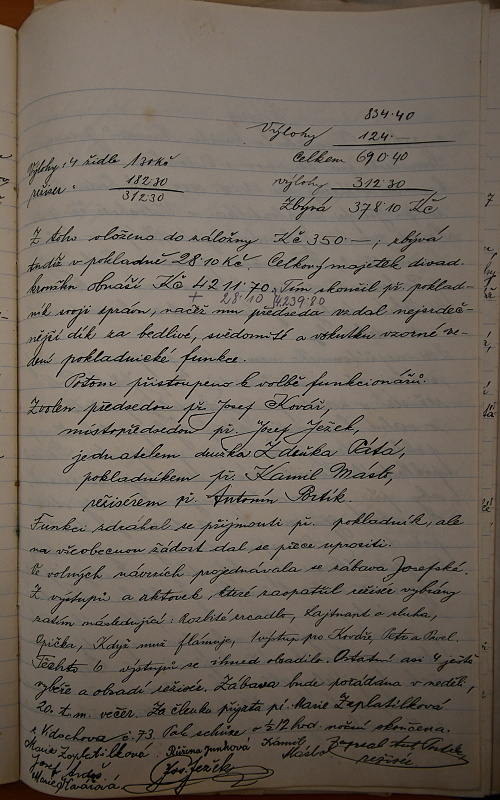 834·40
Výlohy 124·—
Celkem 690·40
Výlohy: 4 židle 130 Kč
výlohy 312·30
režiser " 182·30
312·30
Zbývá 378·10 Kč
Z toho vloženo do záložny Kč 350·—, zbývá
tudíž v pokladně 28·10 Kč. Celkový majetek divad.
kroužku obnáší Kč 4211·70. Tím skončil př. poklad-
+ 28·10 4239·80
ník svoji zprávu, načež mu předseda vzdal nejsrdeč-
nější dík za bedlivé, svědomité a vskutku vzorné ve-
dení pokladnické funkce.
Potom přistoupeno k volbě funkcionářů.
Zvolen předsedou př. Josef Kovář,
místopředsedou př. Josef Ježek,
jednatelem družka Zdeňka Pátá,
pokladníkem př. Kamil Máslo,
režisérem př. Antonín Portík.
Funkci zdráhal se přijmouti př. pokladník, ale
na všeobecnou žádost dal se přece uprositi.
Ve volných návrzích projednávala se zábava Josefská.
Z výstupů a aktovek, které zaopatřil režisér vybrány
zatím následující: Rozbité zrcadlo, Lajtnant a sluha,
Opička, Když muž flámuje, 1 výstup pro Kováře, Petr a Pavel.
Těchto 6 výstupů se ihned obsadilo. Ostatní asi 4 ještě
vybéře a obsadí režisér. Zábava bude pořádána v neděli,
20. t. m. večer. Za členku přijata př. Marie Zaplatílková
z Vdschova č. 73. Pak schůze o ½12 hod. noční skončena.
Marie Zaplatílková. Růžena Junková Kamil
Máslo Zapsal Ant. Portík
režisér
Josef
Jos. Ježek
Marie Kovářová